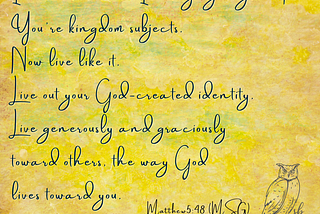 You're kingdom subjects.
Now live like it.
Live out your God-created identity.
Live generously and graciously
toward others, the way God
lives toward you.
Matthew 5:48 (MSG)